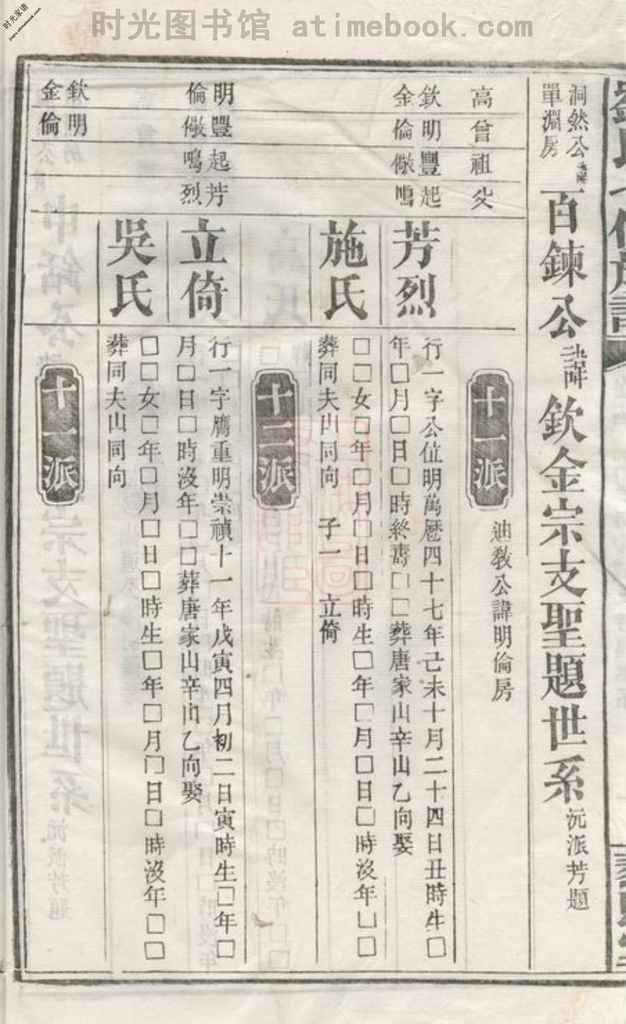 时光图书馆 atimebook.com
时光家谱
洞然公
單淵房
百鍊公諱欽金宗支聖題世系沅派芳題
高曾祖父
十一派
迪教公諱明倫房
欽明豐起
金倫儆鳴
芳烈
行一字公位明萬曆四十七年己未十月二十四日丑時生□
年□月□日□時終壽□□葬唐家山辛山乙向娶
施氏
□□女□年□月□日□時生□年□月□日□時沒年□□
葬同夫山同向 子一 立倚
十二派
明豐起芳
倫儆鳴烈
立倚
行一字鷹重明崇禎十一年戊寅四月初二日寅時生□年□
月□日□時沒年□□葬唐家山辛山乙向娶
吳氏
□□女□年□月□日□時生□年□月□日□時沒年□□
葬同夫山同向
欽明
金倫
十一派